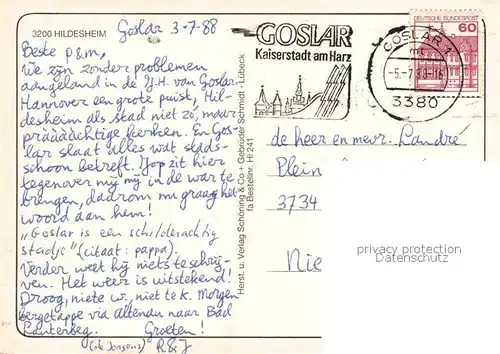 3200 HILDESHEIM
Goslar 3-7-88
Beste p&m,
We zijn zonder problemen
aangeland in de J.H. van Goslar.
Hannover een grote puist, Hil-
desheim als stad niet zo, maar
prááááchtige kerken. En Gos-
lar slaat alles wat stads-
schoon betreft. Jop zit hier
tegenover mij mij in de war te
brengen, daarom nu graag het
woord aan hem!
"Goslar is een schilderachtig
stadje" (citaat: pappa).
Verder weet hij niets te schrij-
ven. Het weer is uitstekend!
Droog, niet w., niet te k. Morgen
bergetappe via Altenau naar Bad
Lauterberg. Groeten!
(de Jongens) R&J
Herst. u. Verlag Schöning & Co + Gebrüder Schmidt · Lübeck
fa Bestellnr. Hi 241
GOSLAR
Kaiserstadt am Harz
GOSLAR 1
mt
-5.-7.88-16
3380
DEUTSCHE BUNDESPOST
60
de heer en mevr. Landré
Plein
3734
Nie
privacy protection
Datenschutz